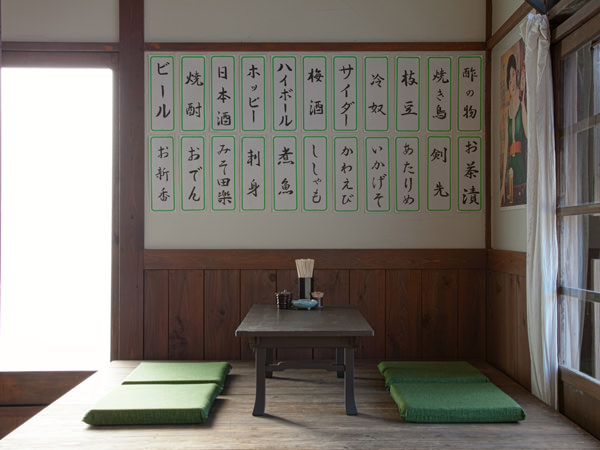 酢の物
焼き鳥
枝豆
冷奴
サイダー
梅酒
ハイボール
ホッピー
日本酒
焼酎
ビール
お茶漬
剣先
あたりめ
いかげそ
かわえび
ししゃも
煮魚
刺身
みそ田楽
おでん
お新香